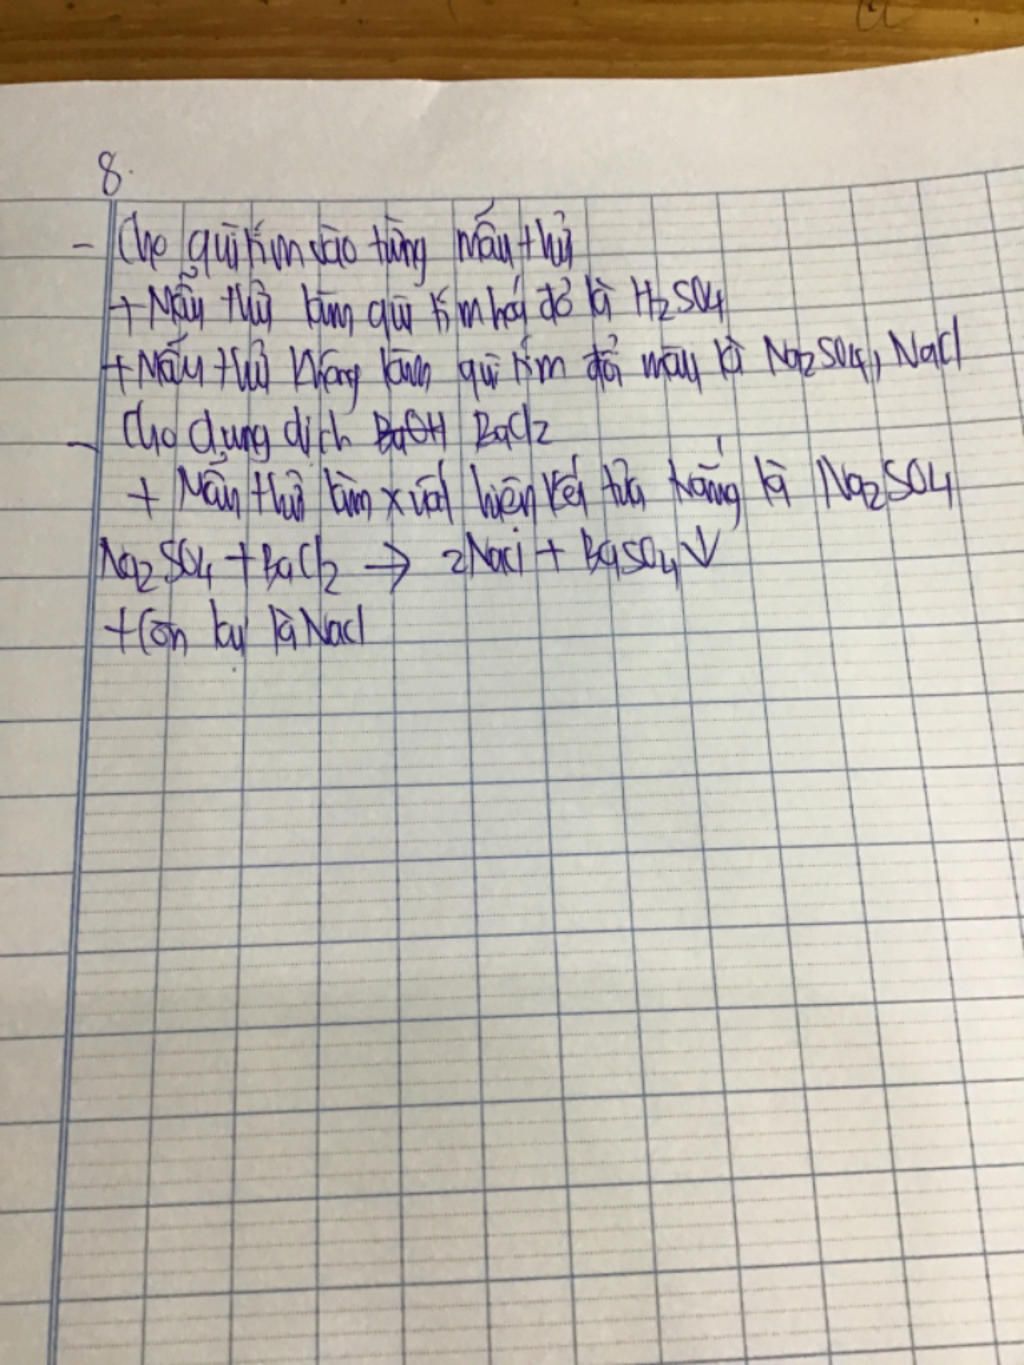 8.
- Cho quì tím vào từng mẫu thử
+ Mẫu thử làm quì tím hoá đỏ là H2SO4
+ Mẫu thử không làm quì tím đổi màu là Na2SO4, NaCl
- Cho dung dịch BaOH BaCl2
+ Mẫu thử làm xuất hiện kết tủa trắng là Na2SO4
Na2SO4 + BaCl2 → 2NaCl + BaSO4 ↓
+ Còn lại là NaCl